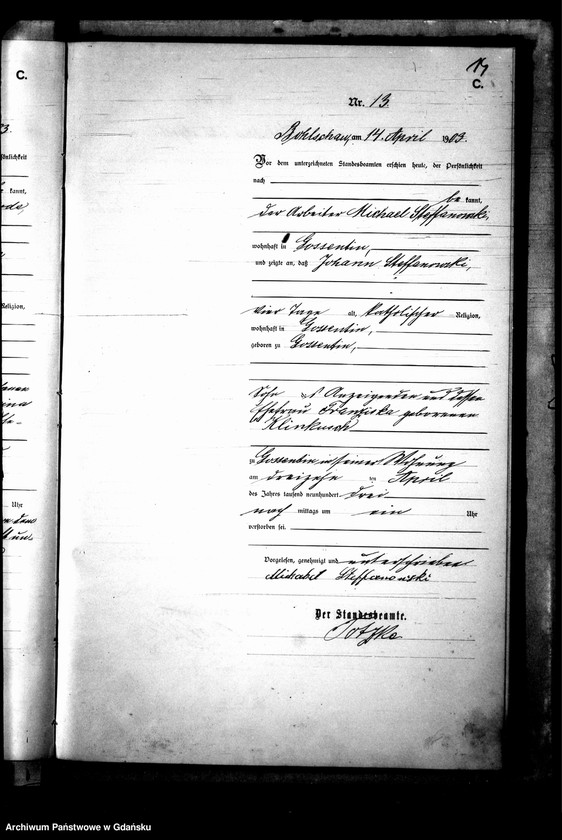 C.
3.
kannt,
Religion,
Uhr
17
C.
Nr. 13.
Bohlschau, am 14. April 1903.
Vor dem unterzeichneten Standesbeamten erschien heute, der Persönlichkeit
nach
be kannt,
der Arbeiter Michael Steffanowski,
wohnhaft in Gossentin,
und zeigte an, daß Johann Steffanowski,
vier Tage alt, katholischer Religion,
wohnhaft in Gossentin,
geboren zu Gossentin,
Sohn des Anzeigenden und dessen
Ehefrau Franziska geborenen
Klinkusch
zu Gossentin, in seiner Wohnung
am dreizehn ten April
des Jahres tausend neunhundert drei
nach mittags um ein Uhr
verstorben sei.
Vorgelesen, genehmigt und unterschrieben
Michael Steffanowski
Der Standesbeamte.
Archiwum Państwowe w Gdańsku